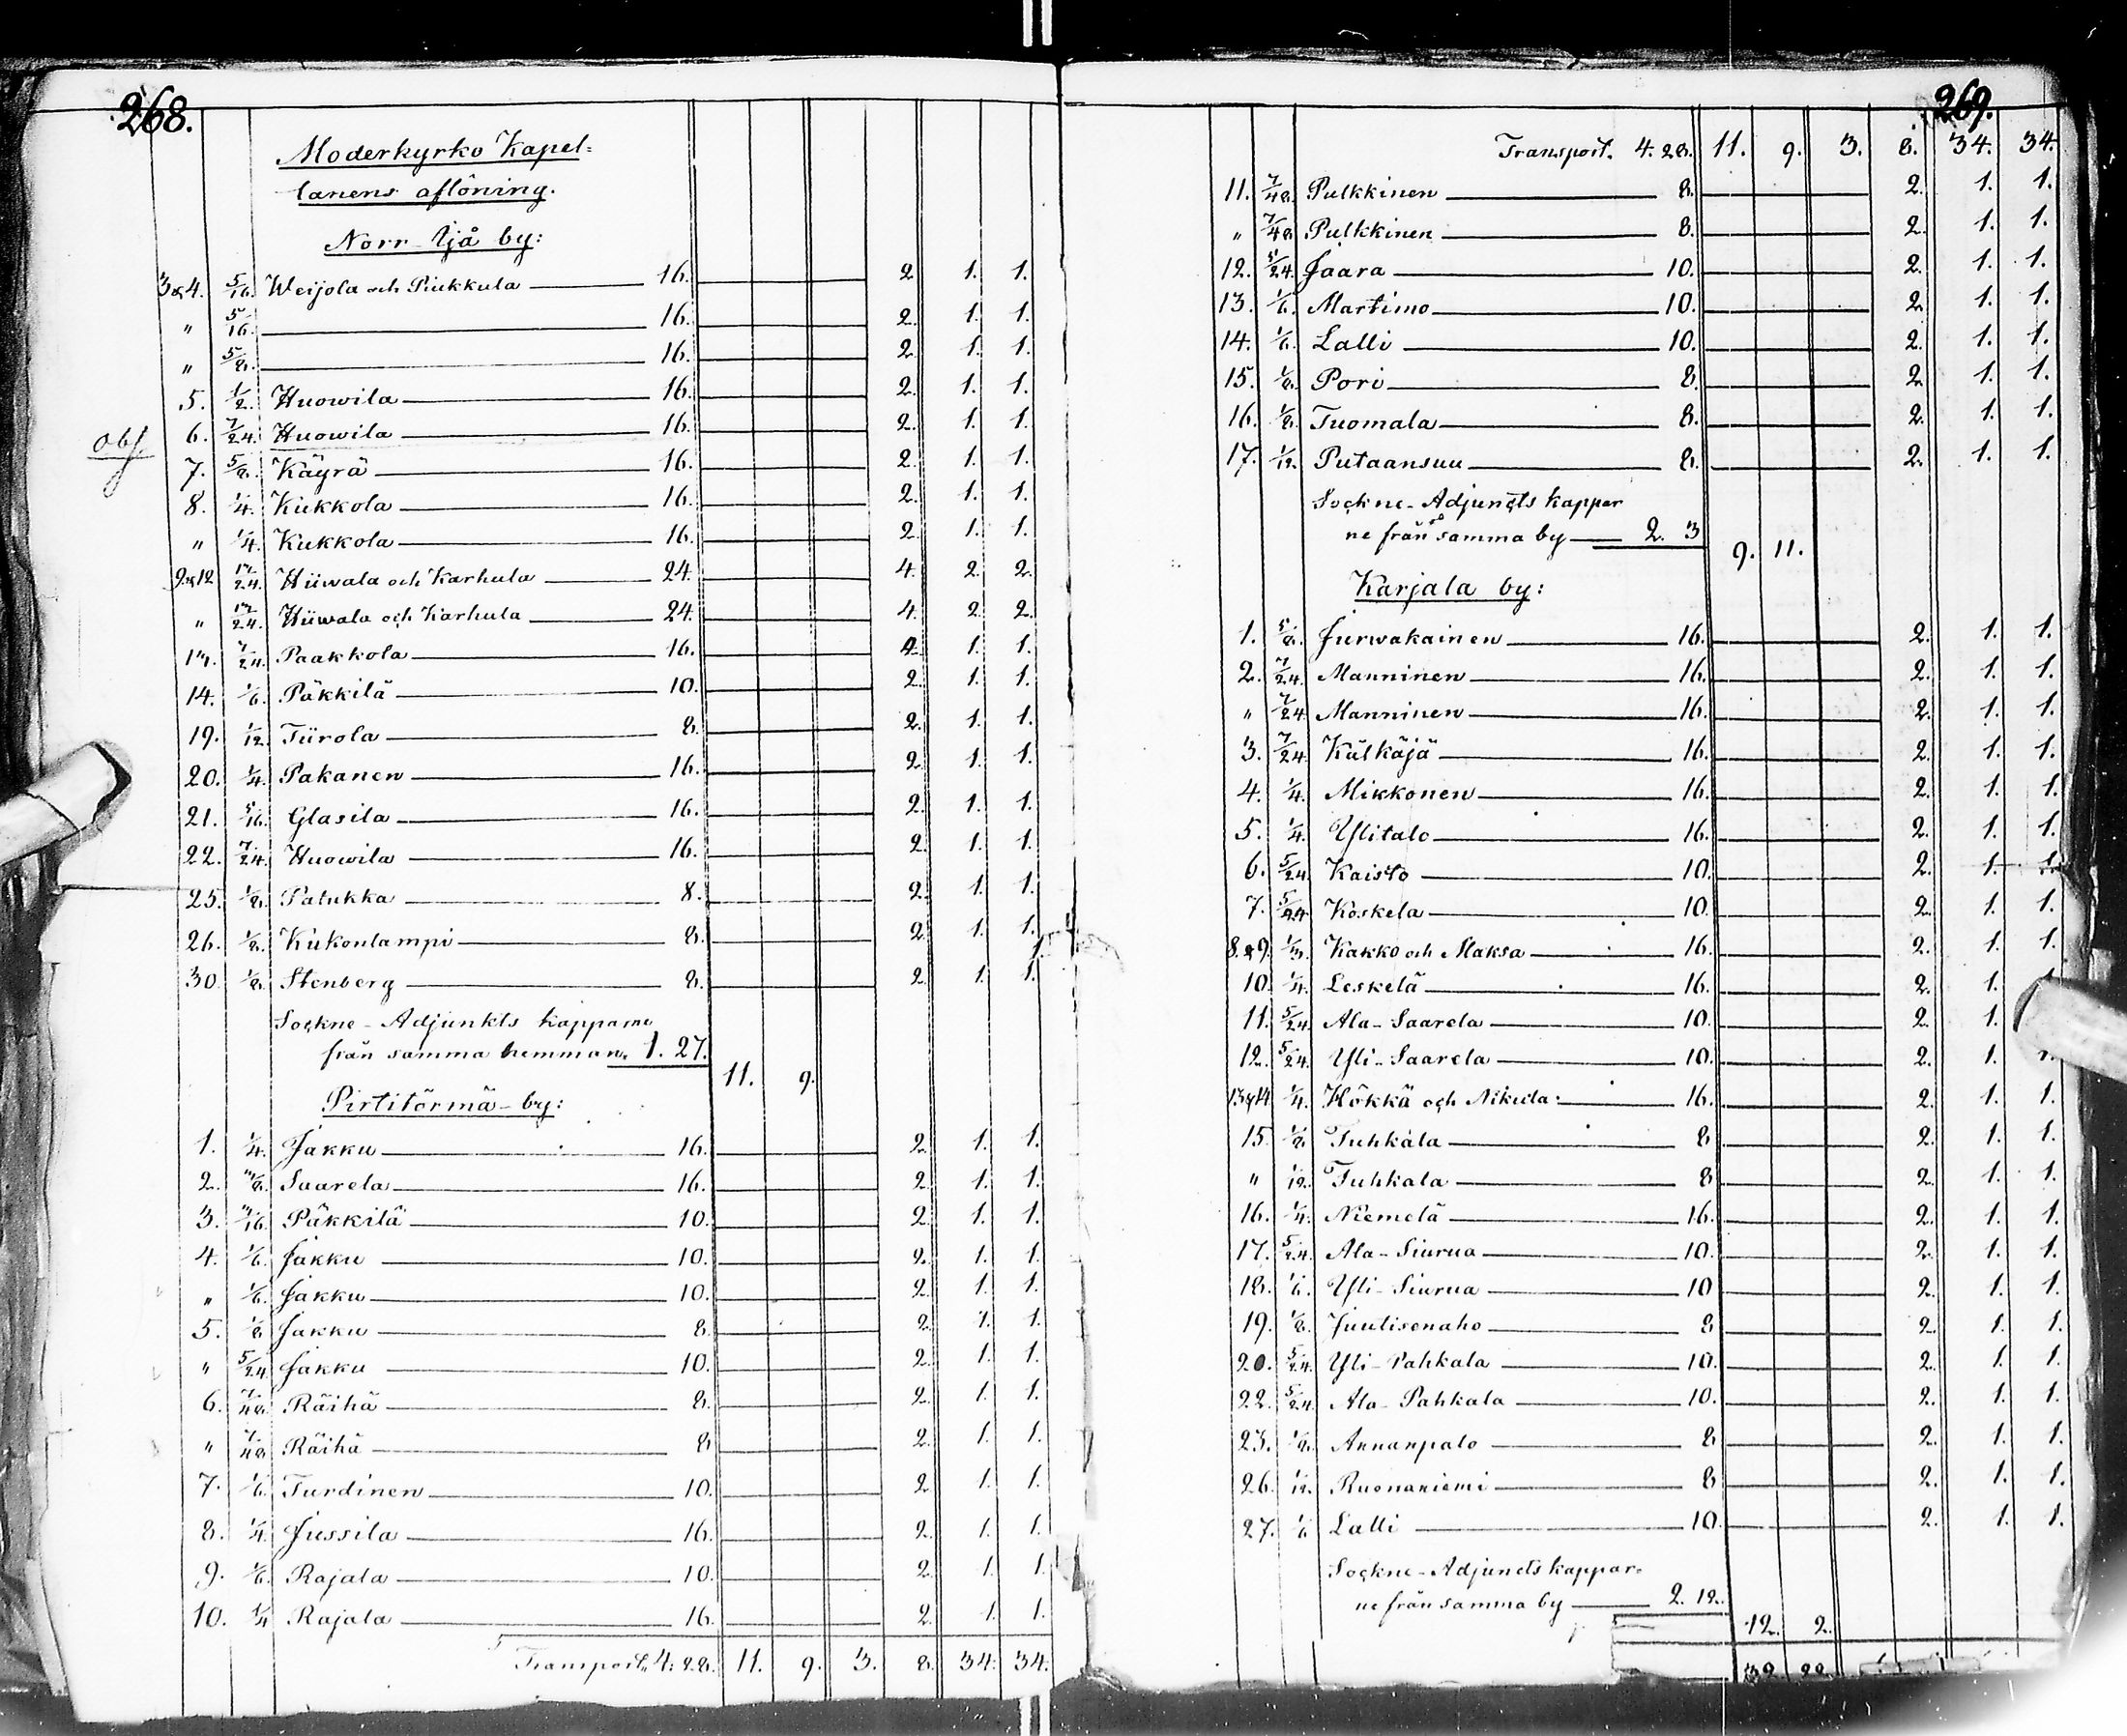 268.
Moderkyrko Kapel=
lanens aflöning.
Norr-Ijå by:
3&4. 5/16. Weijola och Piukkula 16. 2. 1. 1.
" 5/16. 16. 2. 1. 1.
" 5/8. 16. 2. 1. 1.
5. 1/2. Huowila 16. 2. 1. 1.
Obs. 6. 7/24. Huowila 16. 2. 1. 1.
7. 5/8. Käyrä 16. 2. 1. 1.
8. 1/4. Kukkola 16. 2. 1. 1.
" 1/4. Kukkola 16. 2. 1. 1.
9.&12 17/24. Hiiwala och Karhula 24. 4. 2. 2.
" 17/24. Hiiwala och Karhula 24. 4. 2. 2.
13. 7/24. Paakkola 16. 2. 1. 1.
14. 1/6. Päkkilä 10. 2. 1. 1.
19. 1/12. Tiirola 8. 2. 1. 1.
20. 1/4. Pakanen 16. 2. 1. 1.
21. 5/16. Glasila 16. 2. 1. 1.
22. 7/24. Huowila 16. 2. 1. 1.
25. 1/8. Patukka 8. 2. 1. 1.
26. 1/8. Kukonlampi 8. 2. 1. 1.
30. 1/8. Stenberg 8. 2. 1. 1.
Sockne-Adjunkts kapparne
från samma hemman. 1. 27.
11. 9.
Pirtitörmä-by:
1. 1/4. Jakku 16. 2. 1. 1.
2. 3/8. Saarela 16. 2. 1. 1.
3. 3/16. Päkkilä 10. 2. 1. 1.
4. 1/6. Jakku 10. 2. 1. 1.
" 1/6. Jakku 10. 2. 1. 1.
5. 1/8 Jakku 8. 2. 1. 1.
" 5/24 Jakku 10. 2. 1. 1.
6. 7/48. Räihä 8. 2. 1. 1.
" 7/48 Räihä 8 2. 1. 1.
7. 1/6. Turdinen 10. 2 1. 1.
8. 1/4. Jussila 16. 2. 1. 1.
9. 1/6. Rajala 10. 2. 1. 1.
10. 1/4 Rajala 16. 2. 1. 1.
Transport, 4. 28. 11. 9. 3. 8. 34. 34.
269.
Transport. 4. 28. 11. 9. 3. 8. 34. 34.
11. 7/48. Pulkkinen 8. 2. 1. 1.
" 7/48 Pulkkinen 8. 2. 1. 1.
12. 5/24. Jaara 10. 2. 1. 1.
13. 1/6. Martimo 10. 2. 1. 1.
14. 1/6. Lalli 10. 2. 1. 1.
15. 1/8. Pori 8. 2. 1. 1.
16. 1/8. Tuomala 8. 2. 1. 1.
17. 1/12. Putaansuu 8. 2. 1. 1.
Sockne-Adjuncts kappar
ne från samma by 2. 3
9. 11.
Karjala by:
1. 5/8. Jurwakainen 16. 2. 1. 1.
2. 7/24. Manninen 16. 2. 1. 1.
" 7/24 Manninen 16. 2. 1. 1.
3. 7/24 Kälkäjä 16. 2. 1. 1.
4. 1/4. Mikkonen 16. 2. 1. 1.
5. 1/4. Ylitalo 16. 2. 1. 1.
6. 5/24. Kaisto 10. 2. 1. 1.
7. 5/24. Koskela 10. 2. 1. 1.
8.&9. 1/3. Kakko och Maksa 16. 2. 1. 1.
10. 1/4. Leskelä 16. 2. 1.
11. 5/24. Ala-Saarela 10. 2. 1.
12. 5/24. Yli-Saarela 10. 2. 1. 1.
13&14 1/4. Hökkä och Nikula 16. 2. 1. 1.
15. 1/8. Tuhkala 8 2. 1. 1.
" 1/12. Tuhkala 8 2. 1. 1.
16. 1/4. Niemelä 16. 2. 1. 1.
17. 5/24. Ala-Siurua 10. 2. 1. 1.
18. 1/6. Yli-Siurua 10 2. 1. 1.
19. 1/8. Juutisenaho 8 2. 1. 1.
20. 5/24. Yli-Pahkala 10. 2. 1. 1.
22. 5/24. Ala-Pahkala 10. 2. 1. 1.
23. 1/8. Annanpalo 8 2. 1. 1.
26. 1/12. Ruonaniemi 8 2. 1. 1.
27. 1/6 Lalli 10. 2. 1. 1.
Sockne-Adjuncts kappar-
ne från samma by 2. 12.
12. 2.